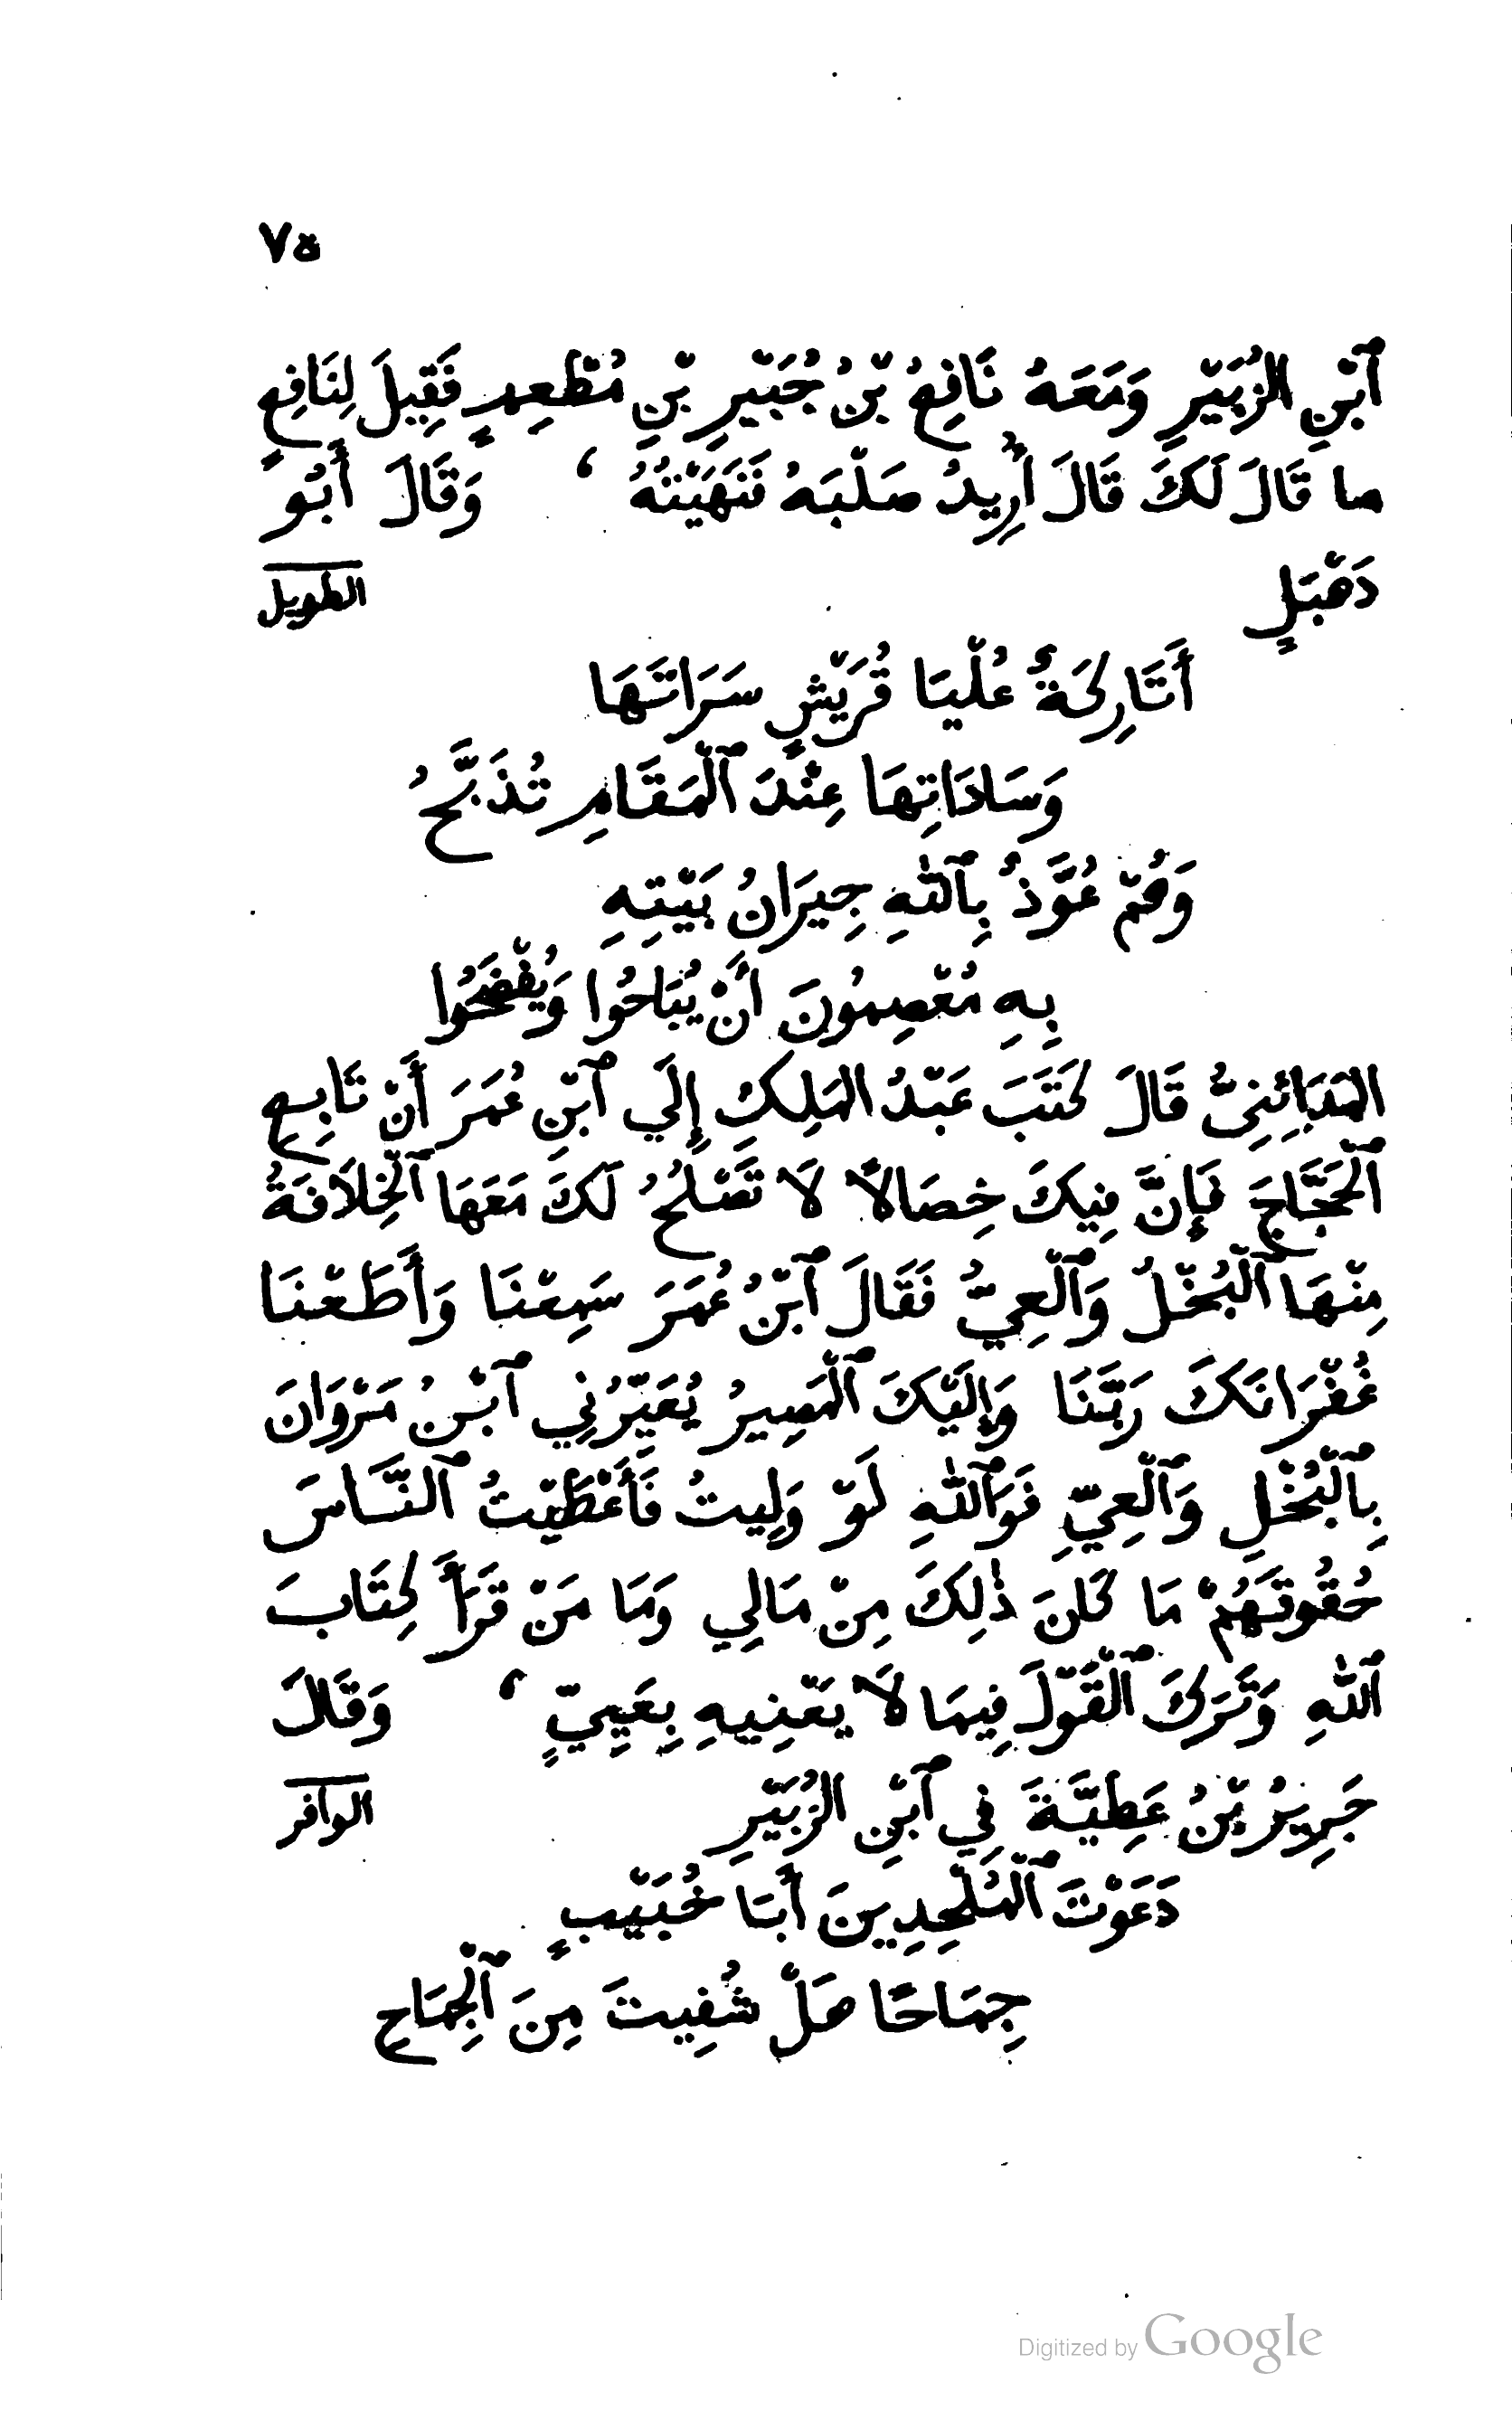 ٧٥
ٱبْنِ الزُبَيْرِ وَمَعَهُ نَافِعُ بْنُ جُبَيْرِ بْنِ مُطْعِمٍ فَقِيلَ لِنَافِعٍ
ما قَالَ لَكَ قَالَ أُرِيدُ صَلْبَهُ فَنَهَيْتُهُ ، وَقَالَ أَبُو
دَهْبَلٍ الطويل
أَتَارِكَةٌ عُلْيَا قُرَيْشٍ سَرَاتَهَا
وَسَادَاتِهَا عِنْدَ ٱلْمَقَامِ تُذَبَّحُ
وَهُمْ عُوَّذٌ بِٱللّٰهِ جِيرَانُ بَيْتِهِ
بِهِ مُعْصِمُونَ أَنْ يُبَاحُوا وَيُفْضَحُوا
المَدَائِنِىُّ قَالَ كَتَبَ عَبْدُ المَلِكِ إِلَي ٱبْنِ عُمَرَ أَنْ تَابِعِ
ٱلْحَجَّاجَ فَإِنَّ فِيكَ خِصَالًا لَا تَصْلُحُ لَكَ مَعَهَا ٱلْخِلَافَةُ
مِنْهَا ٱلْبُخْلُ وَٱلْعِيُّ فَقَالَ ٱبْنُ عُمَرَ سَمِعْنَا وَأَطَعْنَا
غُفْرَانَكَ رَبَّنَا وَإِلَيْكَ ٱلْمَصِيرُ يُعَيِّرُنِي ٱبْنُ مَرْوَانَ
بِٱلْبُخْلِ وَٱلْعِيِّ فَوَٱللّٰهِ لَوْ وَلِيتُ فَأَعْطَيْتُ ٱلنَّاسَ
حُقُوقَهُمْ مَا كَانَ ذٰلِكَ مِنْ مَالِي وَمَا مَنْ قَرَأَ كِتَابَ
ٱللّٰهِ وَتَرَكَ ٱلْقَوْلَ فِيمَا لَا يَعْنِيهِ بِعَيِيٍّ ، وَقَالَ
جَرِيرُ بْنُ عَطِيَّةَ فِي ٱبْنِ الزُبَيْرِ الوافر
دَعَوْتَ ٱلْمُلْحِدِينَ أَبَا خُبَيْبٍ
جِمَاحًا هَلْ شُفِيتَ مِنَ ٱلْجِمَاحِ
Digitized by Google